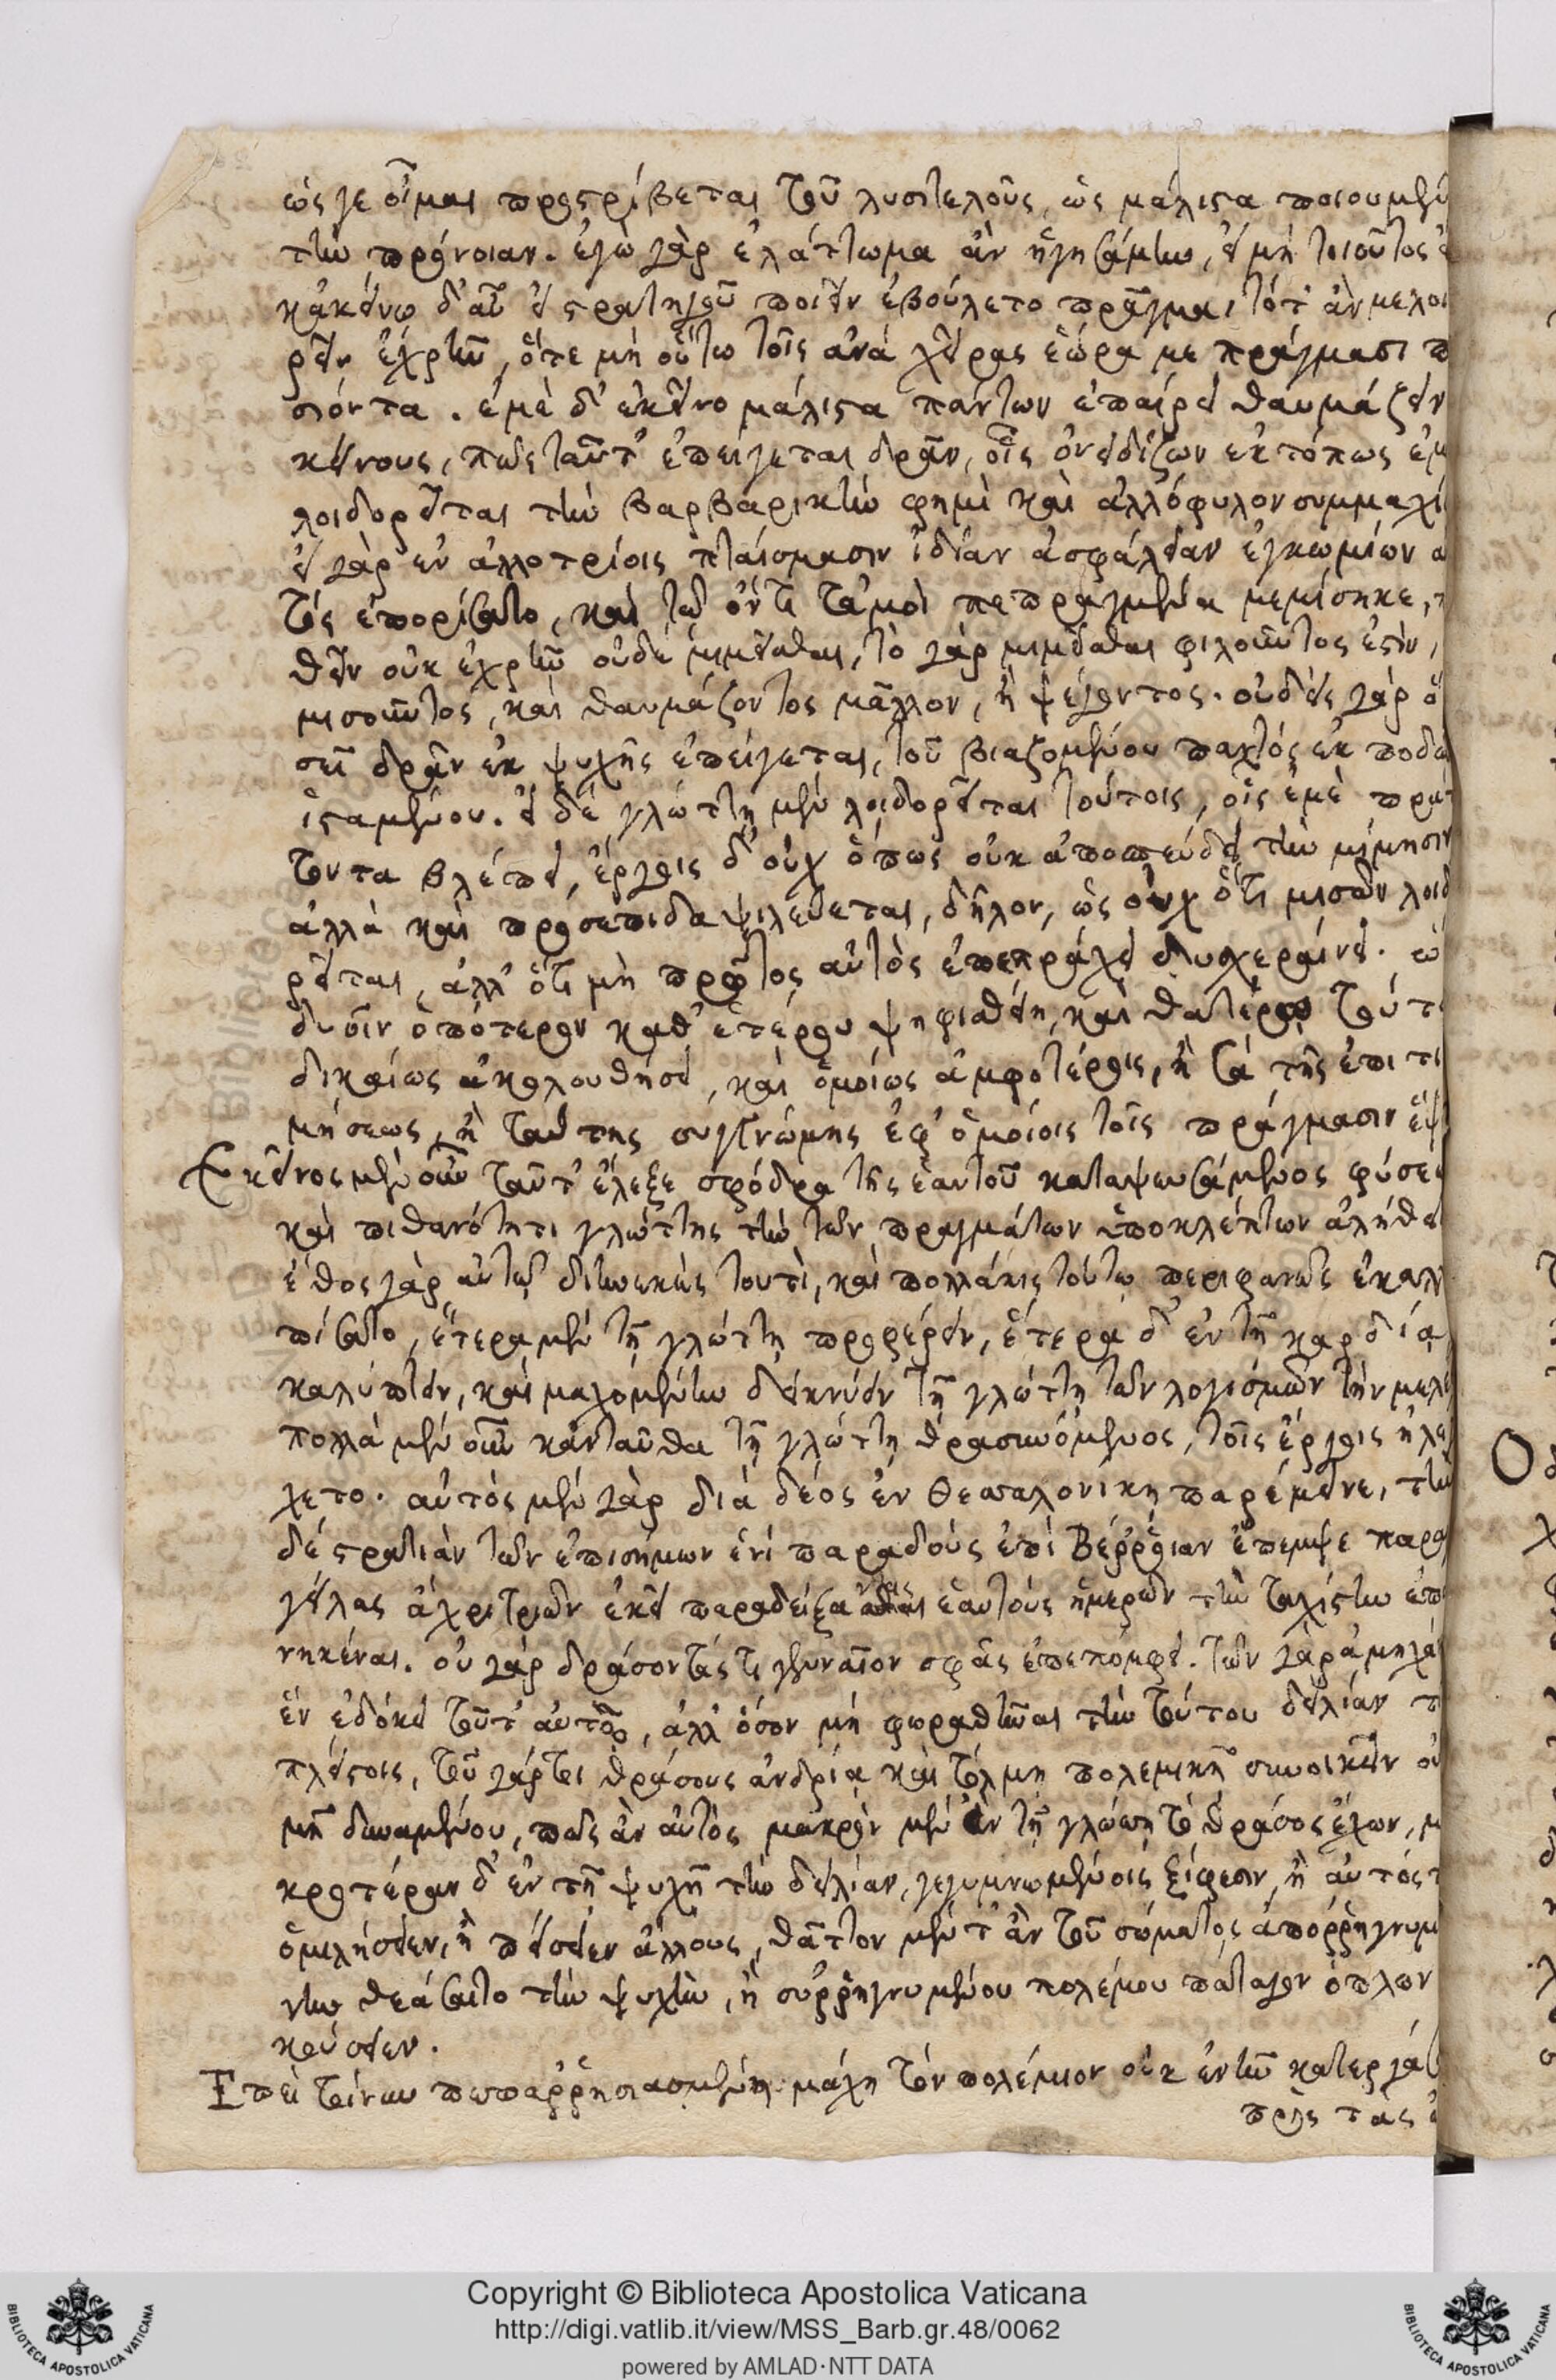 ὡς γε οἶμαι προστρίβεται τοῦ λυσιτελοῦς, ὡς μάλιστα ποιουμέν
τὴν πρόνοιαν. ἐγὼ γὰρ ἐλάττωμα ἂν ἡγησάμην, εἰ μὴ τοιοῦτος
κἀκείνῳ δ' αὖ εἰ στρατηγοῦ ποιεῖν ἐβούλετο πρᾶγμα, τότ' ἂν
ρεῖν ἐχρῆν, ὅτε μὴ οὕτω τοῖς ἀνὰ χεῖρας ἑώρα με πράγμασι π
σιόντα. ἐμὲ δ' ἐκεῖνο μάλιστα πάντων ἐπαίρει θαυμάζειν
κείνους, πῶς ταῦτ' ἐπείγεται δρᾶν, οἷς ὀνειδίζων ἐκτόπως ἐμ
λοιδορεῖται τὴν βαρβαρικὴν φημὶ καὶ ἀλλόφυλον συμμαχί
εἰ γὰρ ἐν ἀλλοτρίοις πταίσμασιν ἰδίαν ἀσφάλειαν ἐγκωμίων
τις ἐπορίσατο, καὶ τῷ ὄντι τἀμοὶ πεπραγμένα μεμίσηκε,
θεῖν οὐκ ἐχρῆν οὐδὲ μιμεῖσθαι, τὸ γὰρ μιμεῖσθαι φιλοῦντος ἐστὶν,
μισοῦντος, καὶ θαυμάζοντος μᾶλλον, ἢ ψέγοντος. οὐδεὶς γὰρ ὃ
σεῖ δρᾶν ἐκ ψυχῆς ἐπείγεται, τοῦ βιαζομένου παντὸς ἐκ ποδὼ
ἱσταμένου. εἰ δὲ γλώττῃ μὲν λοιδορεῖται τούτοις, οἷς ἐμὲ πράτ
τοντα βλέπει, ἔργοις δ' οὐχ ὅπως οὐκ ἀποπεύδει τὴν μίμησιν
ἀλλὰ καὶ προσεπιδαψιλεύεται, δῆλον, ὡς οὐχ ὅτι μισῶν λοιδ
ρεῖται, ἀλλ' ὅτι μὴ πρῶτος αὐτὸς ἐπεπράχει δυσχεραίνει.
δυοῖν ὁπότερον καθ' ἑτέρου ψηφισθείη, καὶ θατέρῳ τοῦτ
δικαίως ἀκολουθήσει, καὶ ὁμοίως ἀμφοτέροις, ἢ τὰ τῆς ἐπιτι
μήσεως, ἢ τὰ τῆς συγγνώμης ἐφ' ὁμοίοις τοῖς πράγμασιν ἕψ
Ἐκεῖνος μὲν οὖν ταῦτ' ἔλεξε σφόδρα τῆς ἑαυτοῦ καταψευσάμενος φύσε
καὶ πιθανότητι γλώττης τὴν τῶν πραγμάτων ὑποκλέπτων ἀλήθε
ἔθος γὰρ αὐτῷ διηνεκὲς τουτὶ, καὶ πολλάκις τούτῳ περιφανῶς ἐκαλλ
πίσατο, ἕτερα μὲν τῇ γλώττῃ προφέρειν, ἕτερα δ' ἐν τῇ καρδίᾳ
καλύπτειν, καὶ μαχομένην δεικνύειν τῇ γλώττῃ τῶν λογισμῶν τὴν μελέ
πολλὰ μὲν οὖν κἀνταῦθα τῇ γλώττῃ θρασυνόμενος, τοῖς ἔργοις ἠλέ
χετο. αὐτὸς μὲν γὰρ διὰ δέος ἐν Θεσσαλονίκῃ παρέμεινε, τὴν
δὲ στρατιὰν τῶν ἐπισήμων ἑνὶ παραδοὺς ἐπὶ Βέῤῥοιαν ἔπεμψε παρα
γείλας ἄχρι τριῶν ἐκεῖ παραδείξαντας ἑαυτοὺς ἡμερῶν τὴν ταχίστην ἐπ
νηκέναι. οὐ γὰρ δράσοντάς τι γενναῖον σφᾶς ἐπεπόμφει. τῶν γὰρ ἀμηχά
ἓν ἐδόκει τοῦτ' αὐτῷ, ἀλλ' ὅσον μὴ φωραθῆναι τὴν τούτου δειλίαν τ
πλείστοις, τοῦ γάρ τοι θράσους ἀνδρίᾳ καὶ τόλμῃ πολεμικῇ συνοικεῖν οὐ
μῆ δυναμένου, πῶς ἂν αὐτὸς μακρὸν μὲν ἐν τῇ γλώττῃ τὸ θράσος ἔχων, μ
κροτέραν δ' ἐν τῇ ψυχῇ τὴν δειλίαν, γεγυμνωμένοις ξίφεσιν, ἢ αὐτός τ
ὁμιλήσειεν, ἢ πείσειεν ἄλλους, θᾶττον μέντ' ἂν τοῦ σώματος ἀποῤῥηγνυμ
νην θεάσαιτο τὴν ψυχὴν, ἢ συῤῥηγνυμένου πολέμου πάταγον ὅπλων
κρύσειεν.
Ἐπεὶ τοίνυν πεπαῤῥησιασμένῃ μάχῃ τὸν πολέμιον οὐκ ἐνῆν κατεργάσ
πρὸς τὰς
Copyright © Biblioteca Apostolica Vaticana
http://digi.vatlib.it/view/MSS_Barb.gr.48/0062
powered by AMLAD·NTT DATA
BIBLIOTECA APOSTOLICA VATICANA
BIBLIOTECA APOSTOLICA VATICANA